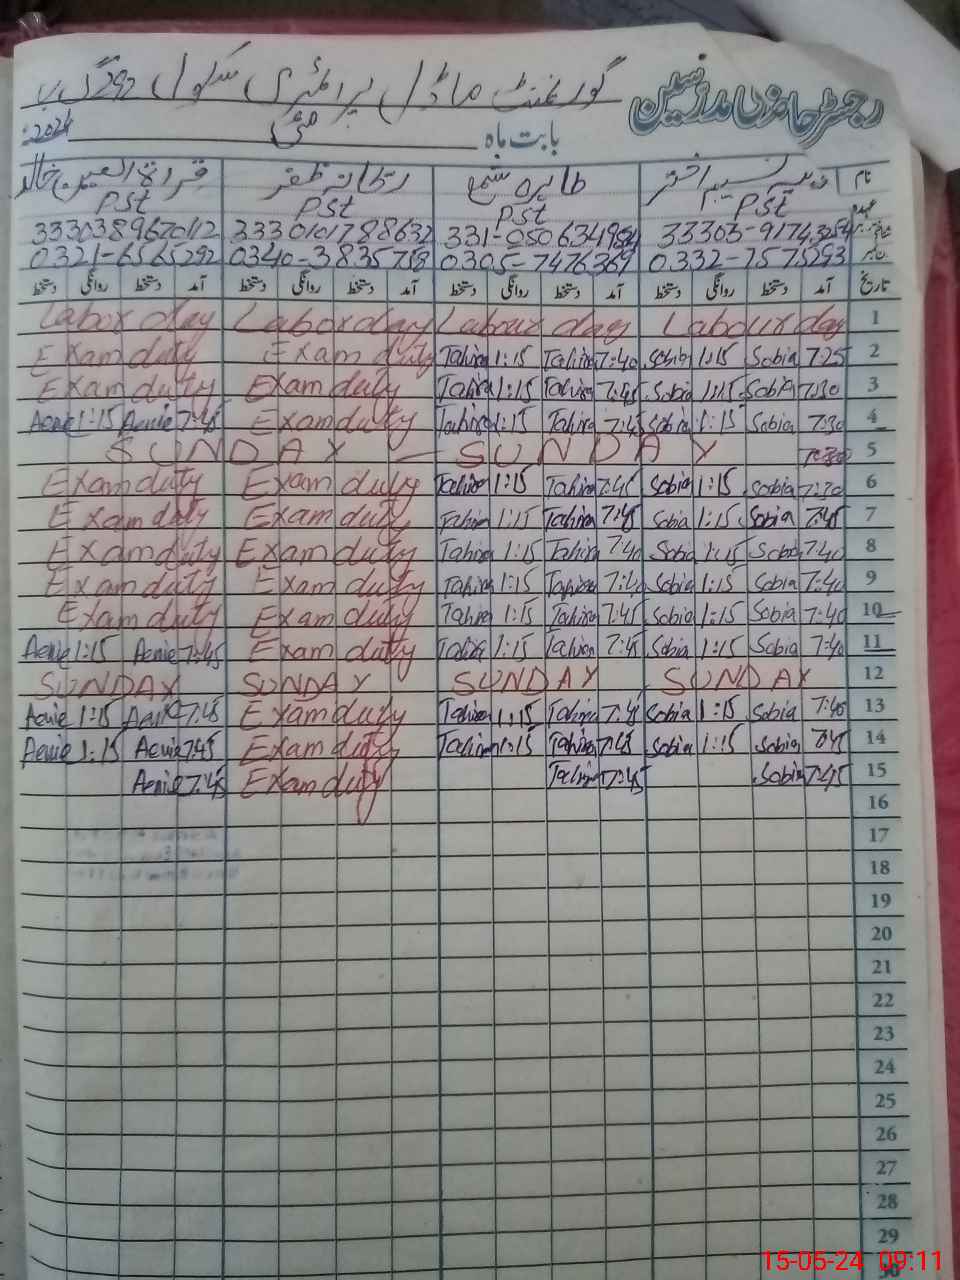 رجسٹر حاضری مدرسین
گورنمنٹ ماڈل پرائمری سکول 292 گ ب
بابت ماہ مئی 2024ء
نام طاہرہ شمع قرۃ العین خالد
PSt PSt PSt PSt
33303-9174 331-0506349 3330101788632
0332-7575293 0305-7476369 0340-3835758 0321-6565292
تاریخ آمد دستخط روانگی دستخط آمد دستخط روانگی دستخط آمد دستخط روانگی دستخط آمد دستخط روانگی دستخط
Labor day Labor day Labour day Labour day 1
Exam duty Exam duty Tahira 1:15 Tahira 7:40 Sobia 1:15 Sobia 7:25 2
Exam duty Exam duty Tahira 1:15 Tahira 7:45 Sobia 1:15 Sobia 7:30 3
Aenie 1:15 Aenie 7:45 Exam duty Tahira 1:15 Tahira 7:45 Sobia 1:15 Sobia 7:30 4
SUNDAY — SUNDAY 5
Exam duty Exam duty Tahira 1:15 Tahira 7:45 Sobia 1:15 Sobia 7:30 6
Exam duty Exam duty Tahira 1:15 Tahira 7:45 Sobia 1:15 Sobia 7:45 7
Exam duty Exam duty Tahira 1:15 Tahira 7:40 Sobia 1:15 Sobia 7:40 8
Exam duty Exam duty Tahira 1:15 Tahira 7:40 Sobia 1:15 Sobia 7:40 9
Exam duty Exam duty Tahira 1:15 Tahira 7:45 Sobia 1:15 Sobia 7:40 10
Aenie 1:15 Aenie 7:45 Exam duty Tahira 1:15 Tahira 7:45 Sobia 1:15 Sobia 7:40 11
SUNDAY SUNDAY SUNDAY SUNDAY 12
Aenie 1:15 Aenie 7:45 Exam duty Tahira 1:15 Tahira 7:45 Sobia 1:15 Sobia 7:40 13
Aenie 1:15 Aenie 7:45 Exam duty Tahira 1:15 Tahira 7:45 Sobia 1:15 Sobia 7:45 14
Aenie 7:45 Exam duty Tahira 7:45 Sobia 7:45 15
16
17
18
19
20
21
22
23
24
25
26
27
28
29
30
15-05-24 09:11